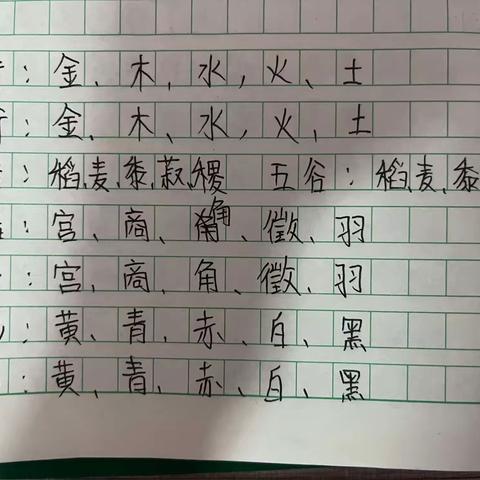 ：金、木、水，火、土
：金、木、水，火、土
：稻、麦、黍、菽、稷 五谷：稻、麦、黍
：宫、商、角、徵、羽
：宫、商、角、徵、羽
：黄、青、赤、白、黑
：黄、青、赤、白、黑